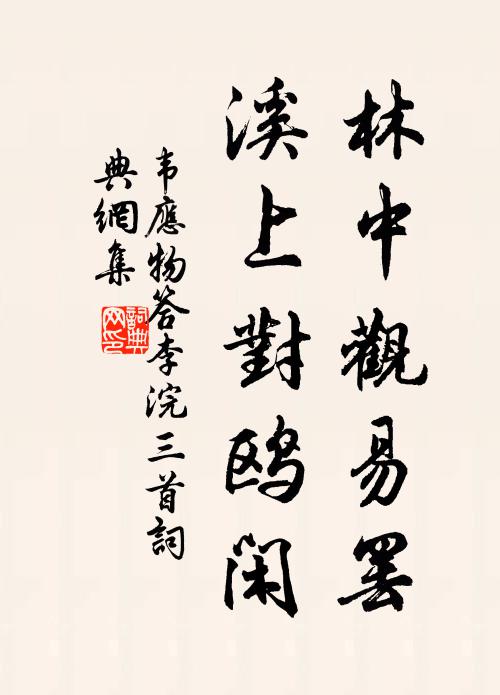 林中觀易罷
溪上對鸥闲
韦應物答李浣三首詞
典網集
詞典
网印